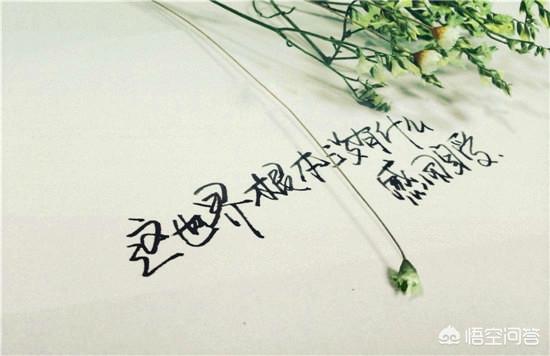 这世界根本没有什么
感同身受.
悟空问答